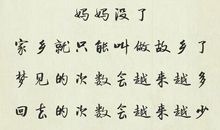 妈妈没了
家乡就只能叫做故乡了
梦见的次数会越来越多
回去的次数会越来越少